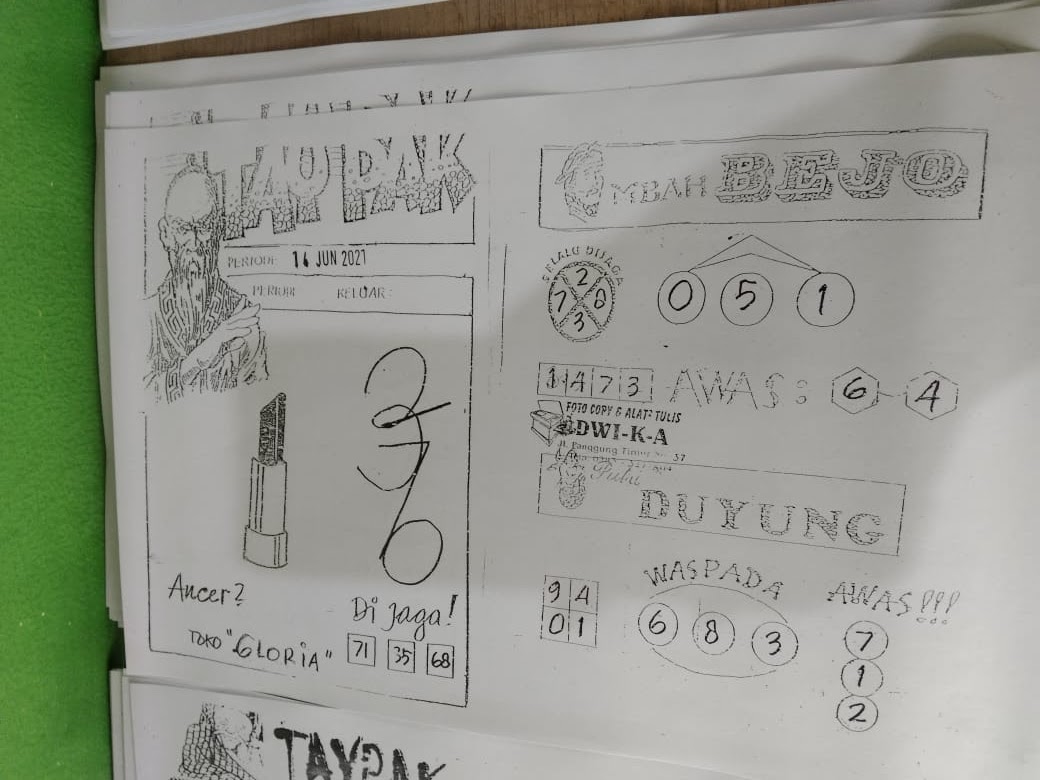 TAYPAK
PERIODE: 16 JUN 2021
PERIODE KELUAR:
Ancer?
TOKO "GLORIA"
Di jaga!
71 35 68
MBAH BEJO
SELALU DIJAGA
2
7 8
3
0 5 1
1 4 7 3 AWAS: 6 - 4
FOTO COPY & ALAT² TULIS
DWI-K-A
Jl. Panggung Timur No. 37
Putri
DUYUNG
9 4
0 1
WASPADA
6 8 3
AWAS!!!
7
1
2
TAYPAK